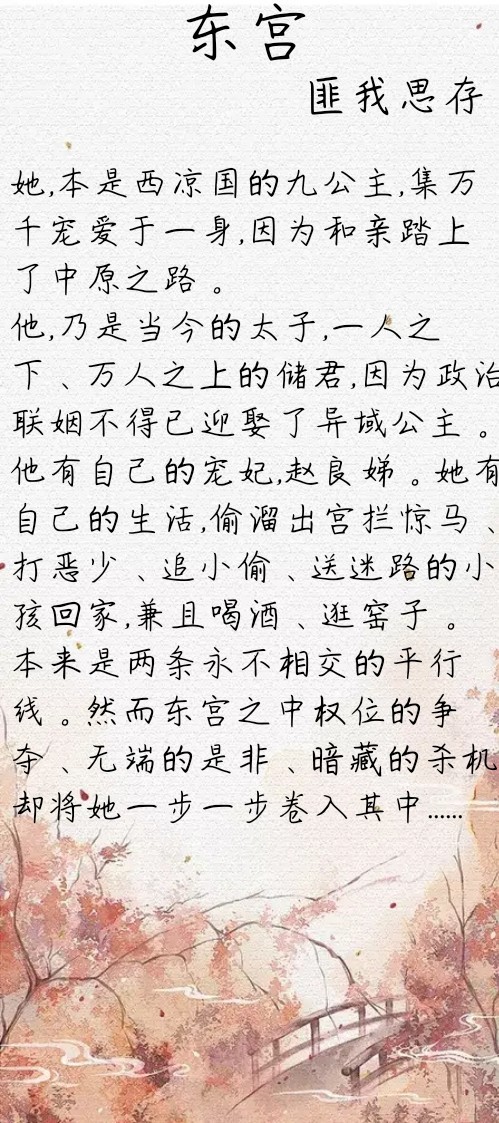 东宫
匪我思存
她,本是西凉国的九公主,集万
千宠爱于一身,因为和亲踏上
了中原之路。
他,乃是当今的太子,一人之
下、万人之上的储君,因为政治
联姻不得已迎娶了异域公主。
他有自己的宠妃,赵良娣。她有
自己的生活,偷溜出宫拦惊马、
打恶少、追小偷、送迷路的小
孩回家,兼且喝酒、逛窑子。
本来是两条永不相交的平行
线。然而东宫之中权位的争
夺、无端的是非、暗藏的杀机
却将她一步一步卷入其中......